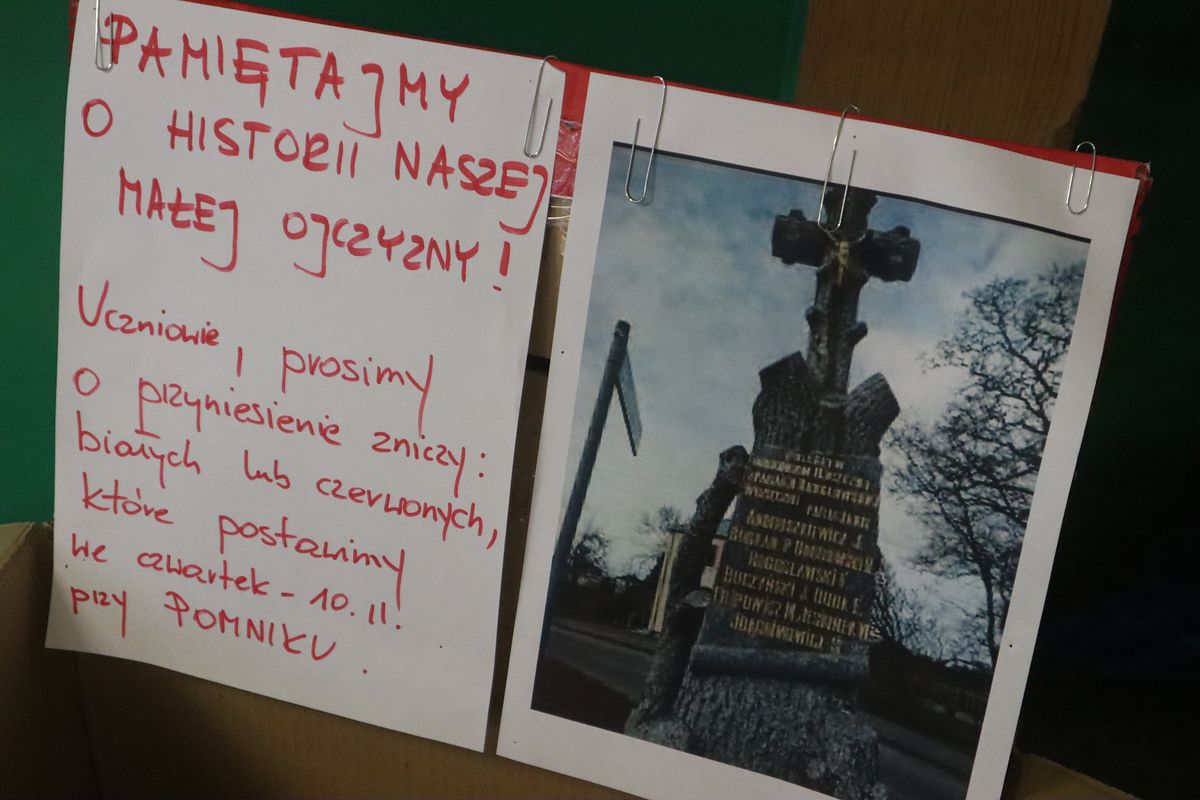 PAMIĘTAJMY
O HISTORII NASZEJ
MAŁEJ OJCZYZNY!
Uczniowie, prosimy
o przyniesienie zniczy:
białych lub czerwonych,
które postawimy
we czwartek - 10.11.
przy POMNIKU.